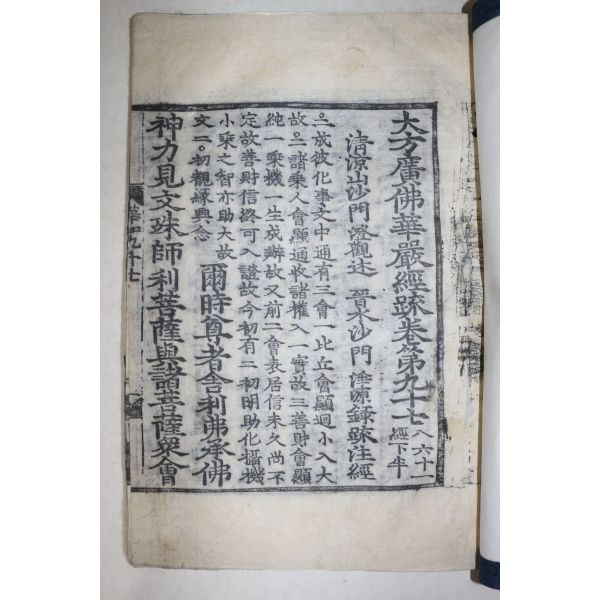 大方廣佛華嚴經疏卷第九十七 八六十一 經下半
清涼山沙門 澄觀述 晉水沙門 淨源錄疏注經
二成彼化事文中通有三會一比丘會顯迴小入大
故二諸乘人會顯通收諸權入一實故三善財會顯
純一乘機一生成辦故又前二會表居信未久尚不
定故善財信終可入證故今初有二初明助化攝機
小乘之智亦助大故 爾時尊者舍利弗承佛
文二初觀緣興念
神力見文殊師利菩薩與諸菩薩眾會
華 九十七